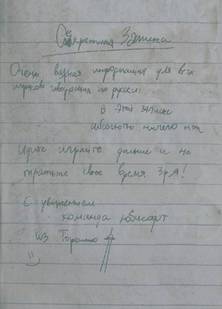 Секретная Записка
Очень важная информация для всех
игроков говорящих на русском:
В этой записке
абсолютно ничего нет
Идите играйте дальше и не
тратьте свое время зря!
С уважением
команда юбисофт
из Торонто